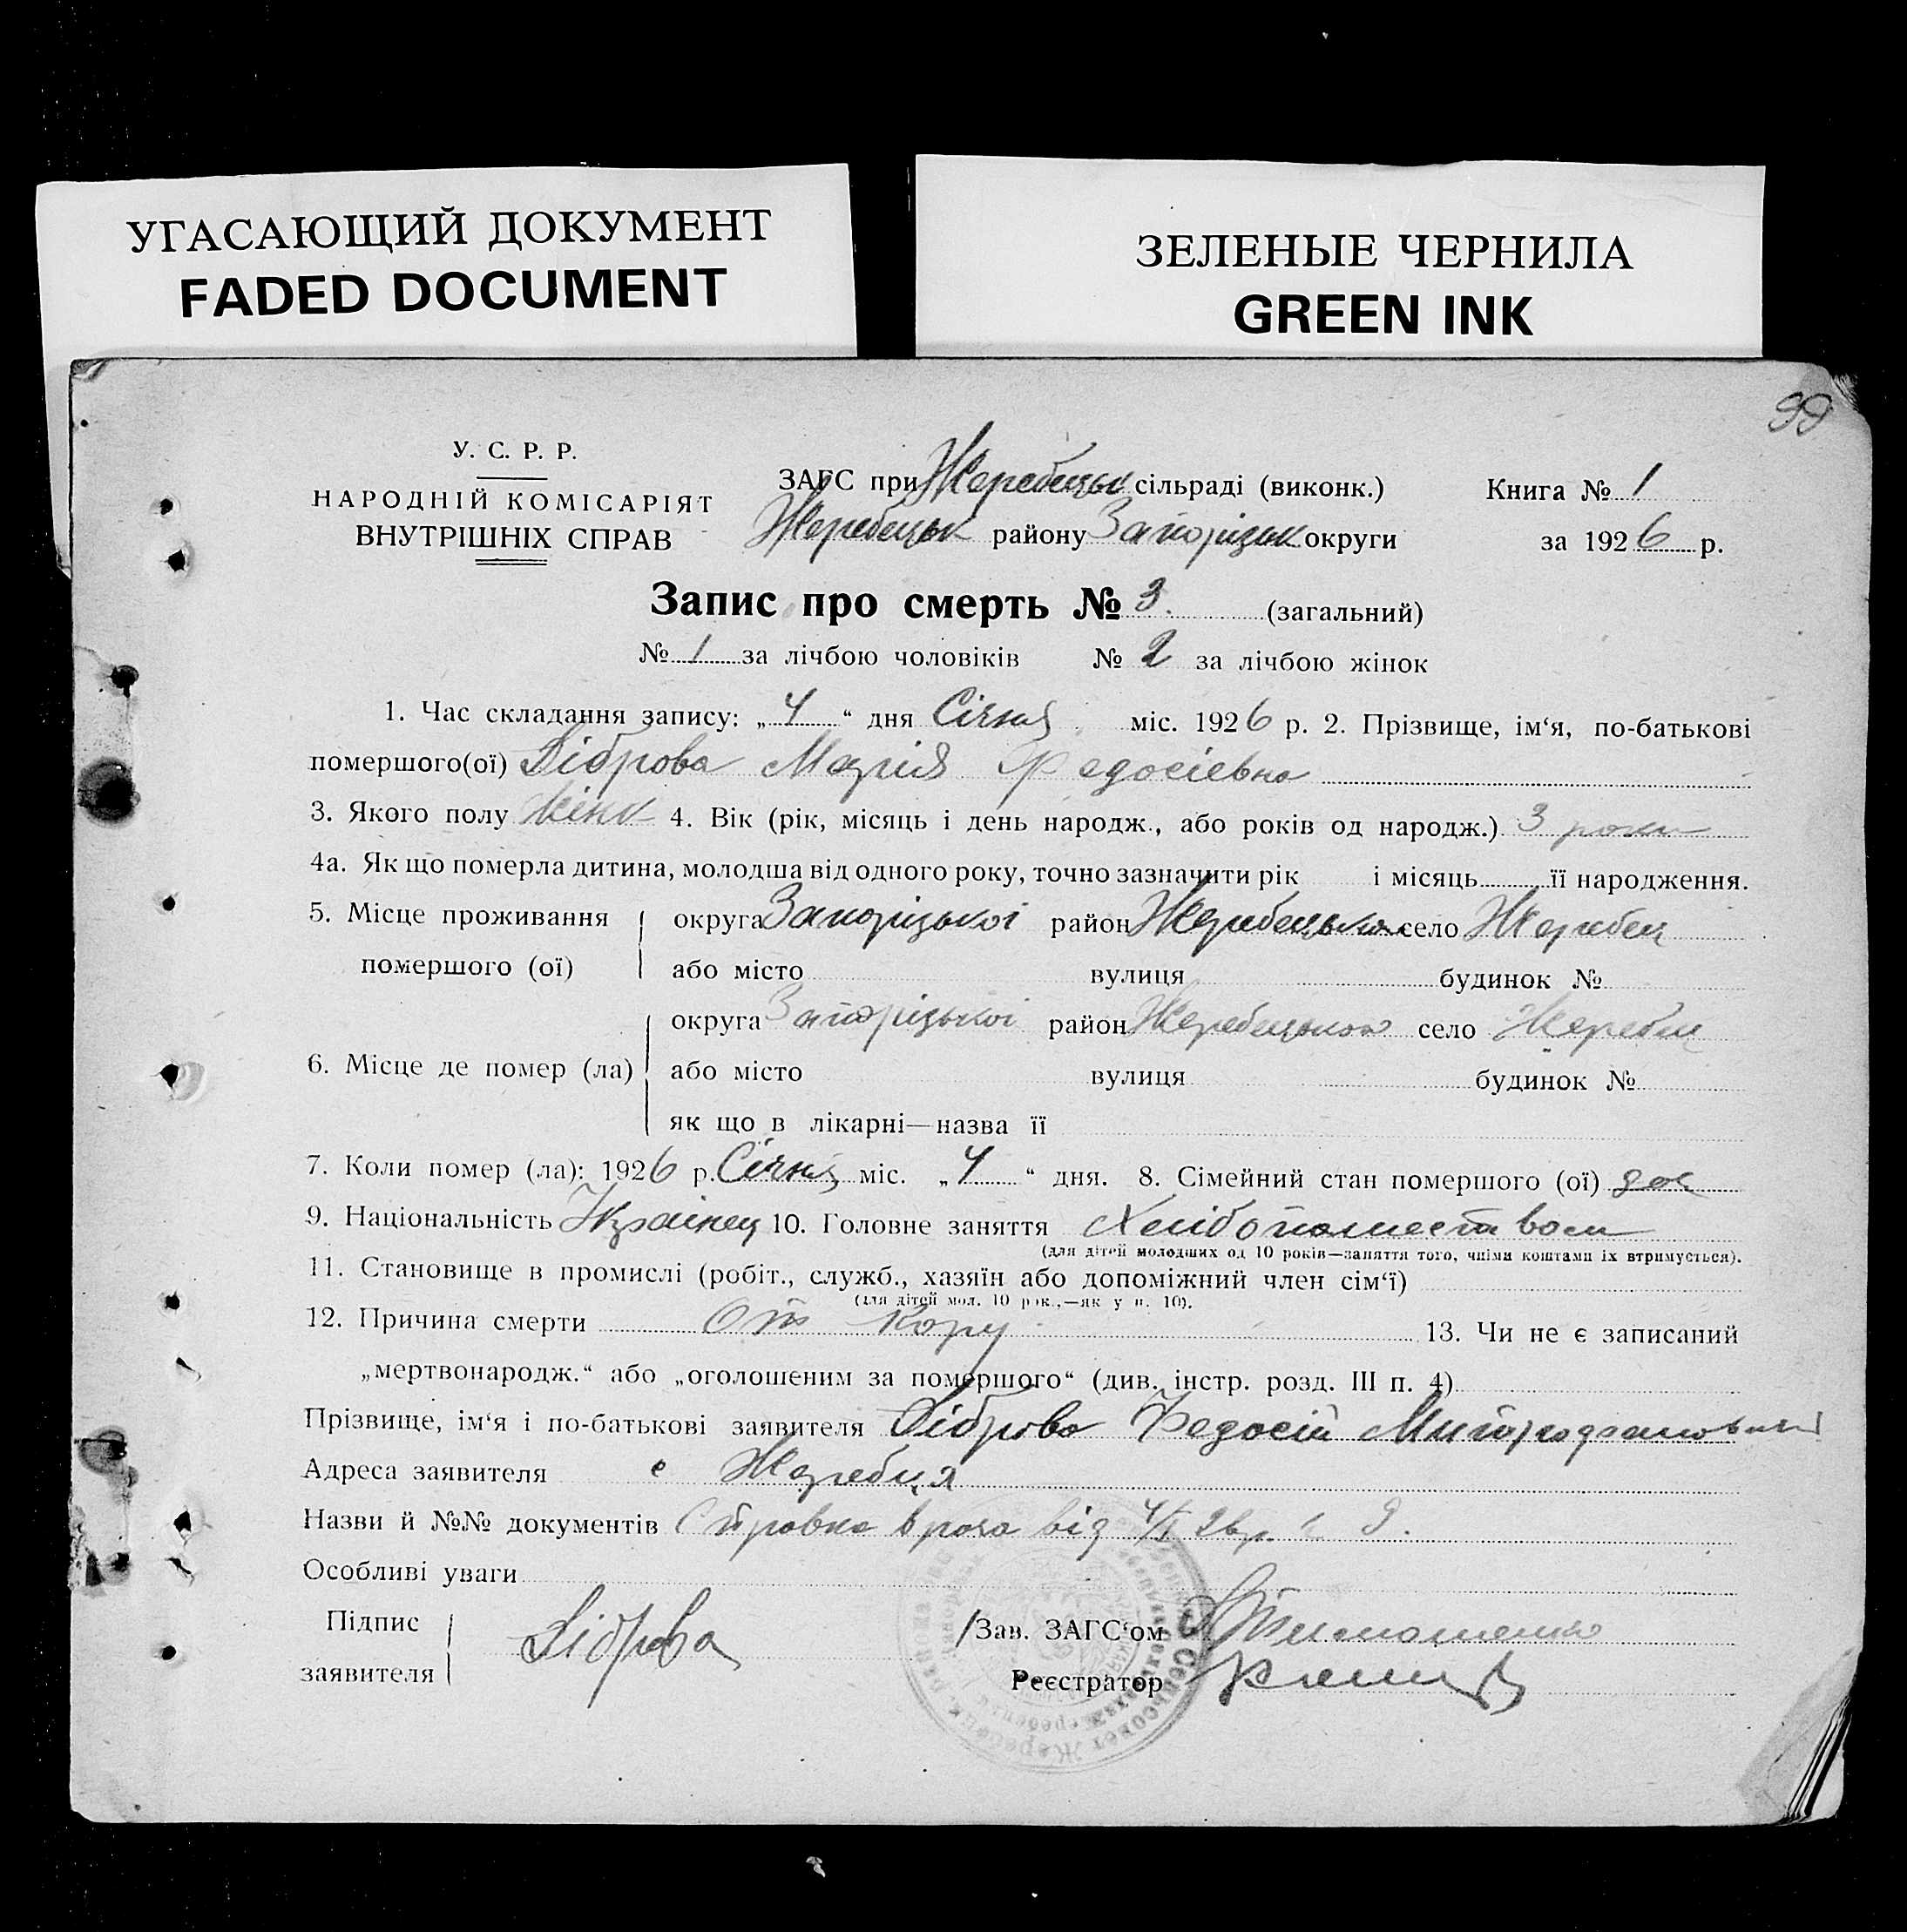 УГАСАЮЩИЙ ДОКУМЕНТ
FADED DOCUMENT
ЗЕЛЕНЫЕ ЧЕРНИЛА
GREEN INK
99
У. С. Р. Р.
НАРОДНІЙ КОМІСАРІЯТ
ВНУТРІШНІХ СПРАВ
ЗАГС при Жеребецьк сільраді (виконк.)
Жеребецьк району Запорізьк округи
Книга № 1
за 1926 р.
Запис про смерть № 3. (загальний)
№ 1 за лічбою чоловіків № 2 за лічбою жінок
1. Час складання запису: „4“ дня Січня міс. 1926 р. 2. Прізвище, ім‘я, по-батькові
помершого(ої) Діброва Марія Федосіевна
3. Якого полу жінк 4. Вік (рік, місяць і день народж., або років од народж.) 3 роки
4а. Як що померла дитина, молодша від одного року, точно зазначити рік і місяць її народження.
5. Місце проживання помершого (ої)
округа Запорізької район Жеребецького село Жеребец
або місто вулиця будинок №
6. Місце де помер (ла)
округа Запорізької район Жеребецького село Жеребец
або місто вулиця будинок №
як що в лікарні—назва її
7. Коли помер (ла): 1926 р. Січня міс. „4“ дня. 8. Сімейний стан помершого (ої)
9. Національність Українец 10. Головне заняття
(для дітей молодших од 10 років—заняття того, чиїми коштами їх втримується).
11. Становище в промислі (робіт., служб., хазяїн або допоміжний член сім‘ї)
(для дітей мол. 10 рок.,—як у п. 10).
12. Причина смерти От кору 13. Чи не є записаний
„мертвонародж.“ або „оголошеним за помершого“ (див. інстр. розд. III п. 4)
Прізвище, ім‘я і по-батькові заявителя Діброва Федосій
Адреса заявителя с Жеребця
Назви й №№ документів Справка врача від 4/I 26 р.
Особливі уваги
Підпис заявителя Діброва
/Зав. ЗАГС‘ом
Реєстратор